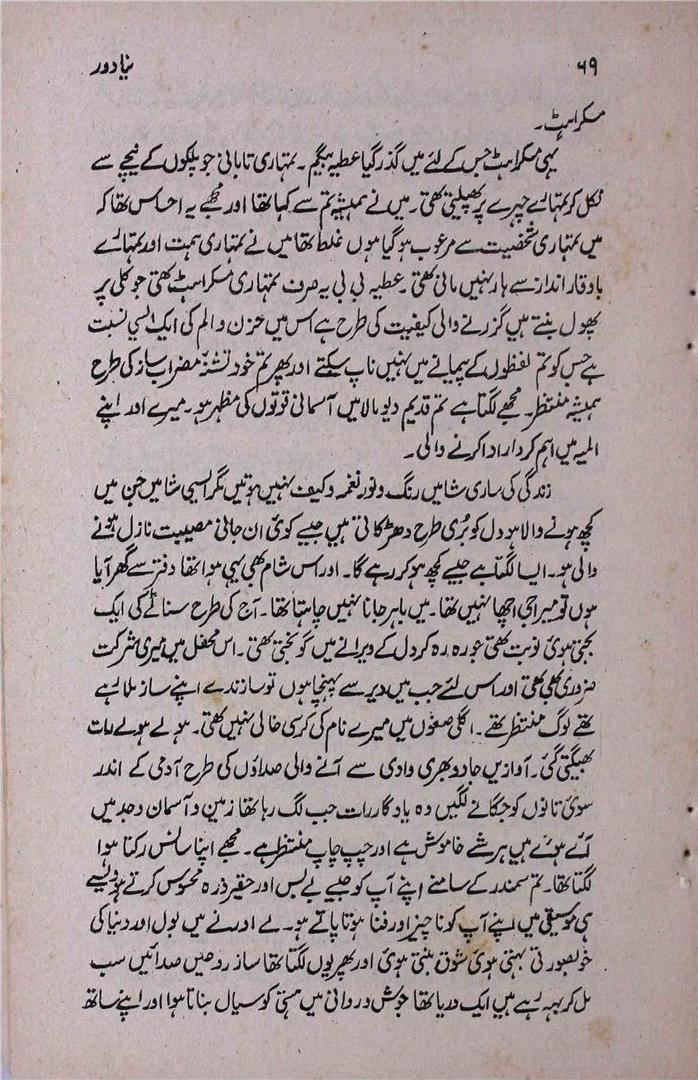 ۶۹ نیا دور
مسکراہٹ۔
یہی مسکراہٹ جس کے لئے میں گذر گیا عطیہ بیگم۔ تمہاری تابانی جو پلکوں کے نیچے سے
نکل کر تمہارے چہرے پر پھیلتی تھی۔ میں نے ہمیشہ تم سے کہا تھا اور مجھے یہ احساس تھا کہ
میں تمہاری شخصیت سے مرعوب ہو گیا ہوں غلط تھا میں نے تمہاری ہمت اور تمہارے
باوقار انداز سے ہار نہیں مانی تھی۔ عطیہ بی بی یہ صرف تمہاری مسکراہٹ تھی جو کلی پر
پھول بنتے میں گزرنے والی کیفیت کی طرح ہے اس میں حزن و الم کی ایک ایسی نسبت
ہے جس کو تم لفظوں کے پیمانے میں نہیں ناپ سکتے اور پھر تم خود تشنۂ مضراب ساز کی طرح
ہمیشہ منتظر۔ مجھے لگتا ہے تم قدیم دیو مالا میں آسمانی قوتوں کی مظہر ہو۔ میرے اور اپنے
المیہ میں اہم کردار ادا کرنے والی۔
زندگی کی ساری شامیں رنگ و نور نغمہ و کیف نہیں ہوتیں مگر ایسی شامیں جن میں
کچھ ہونے والا ہو دل کو بُری طرح دھڑکاتی ہیں جیسے کوئی ان جانی مصیبت نازل ہونے
والی ہو۔ ایسا لگتا ہے جیسے کچھ ہو کر رہے گا۔ اور اس شام بھی یہی ہوا تھا دفتر سے گھر آیا
ہوں تو میرا جی اچھا نہیں تھا۔ میں باہر جانا نہیں چاہتا تھا۔ آج کی طرح سناٹے کی ایک
بجتی ہوئی نوبت تھی جو رہ رہ کر دل کے ویرانے میں گونجتی تھی۔ اس محفل میں میری شرکت
ضروری بھی تھی اور اس لئے جب میں دیر سے پہنچا ہوں تو سازندے اپنے ساز ملا رہے
تھے لوگ منتظر تھے۔ اگلی صفوں میں میرے نام کی کرسی خالی نہیں تھی۔ ہولے ہولے رات
بھیگتی گئی۔ آوازیں جادو بھری وادی سے آنے والی صداؤں کی طرح آدمی کے اندر
سوئی تانوں کو جگانے لگیں وہ یادگار رات جب لگ رہا تھا زمین و آسمان وجد میں
آئے ہوئے ہیں ہر شے خاموش ہے اور چپ چاپ منتظر ہے۔ مجھے اپنا سانس رکتا ہوا
لگتا تھا۔ تم سمندر کے سامنے اپنے آپ کو جیسے بے بس اور حقیر ذرہ محسوس کرتے ہو ویسے
ہی موسیقی میں اپنے آپ کو ناچیز اور فنا ہوتا پاتے ہو۔ لے اور نے میں بول اور دنیا کی
خوبصورتی بہتی ہوئی شوق بنتی ہوئی اور پھر یوں لگتا تھا ساز روحیں صدائیں سب
مل کر بہہ رہے ہیں ایک دریا تھا جوش و روانی میں ہستی کو سیال بناتا ہوا اور اپنے ساتھ